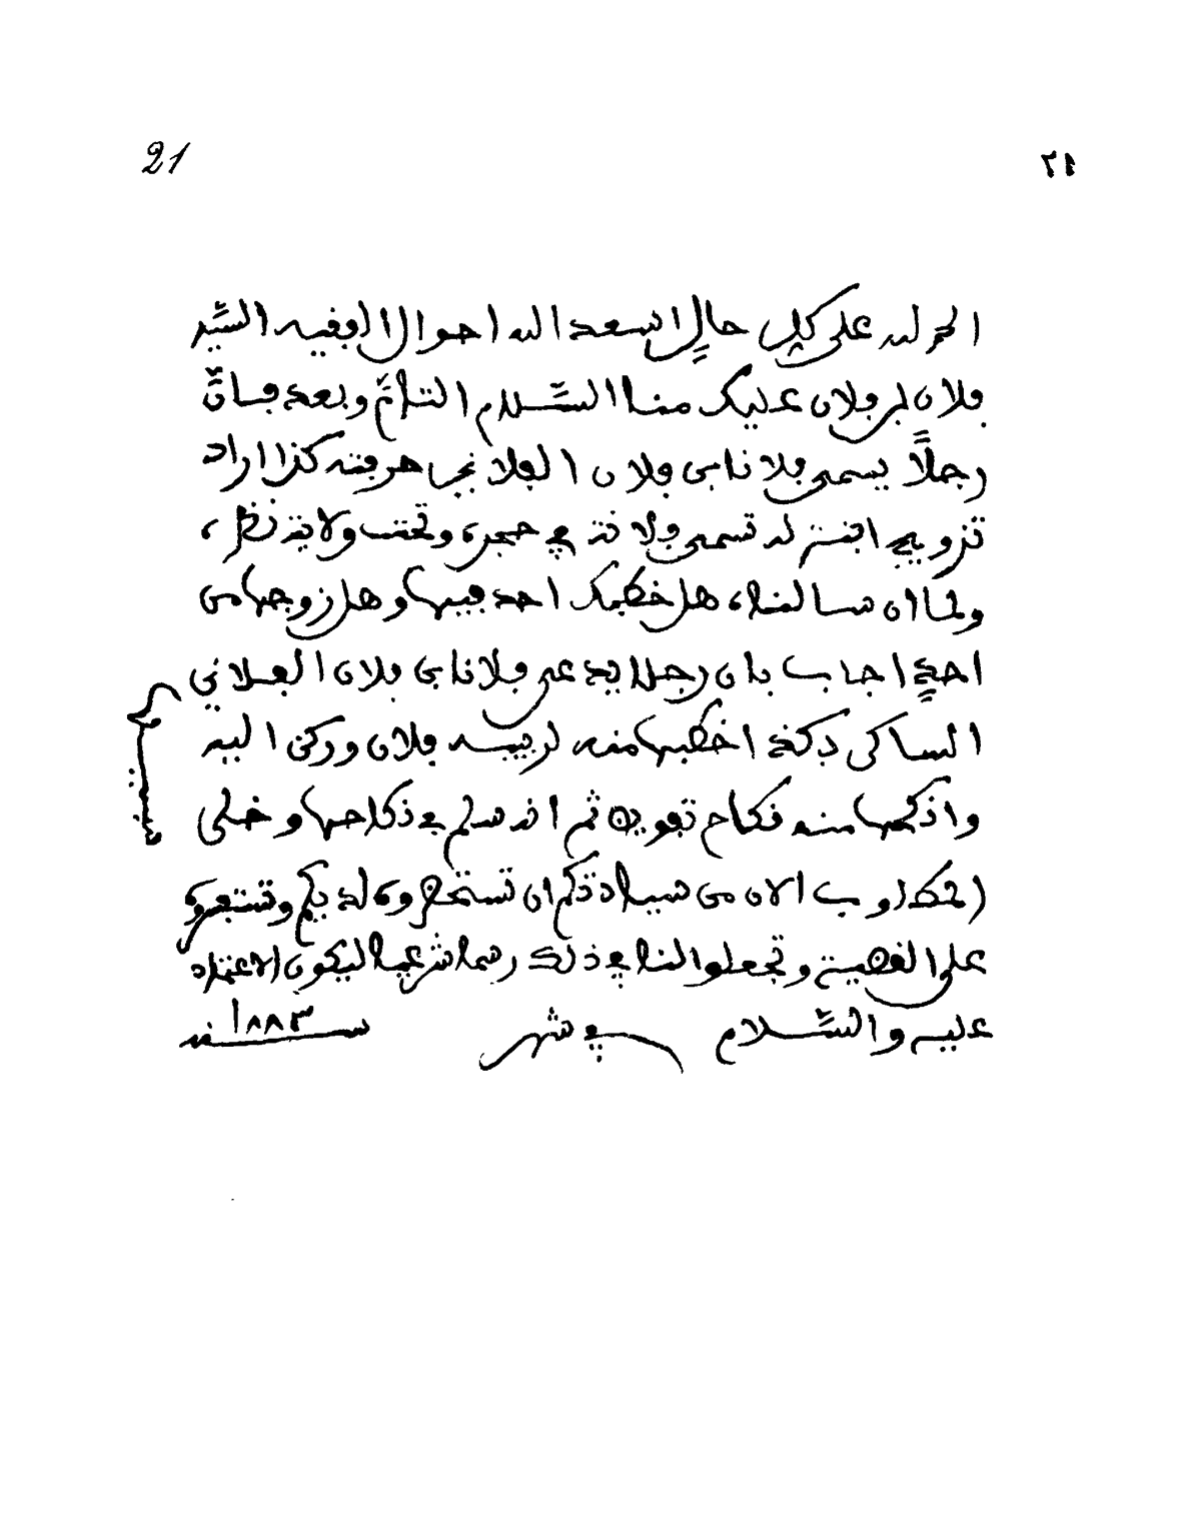 21
٢١
الحمد لله على كل حالٍ اسعد الله احوال الفقيه السَّيد
فلان بن فلان عليك منا السَّلام التامّ وبعد فان
رجلاً يسمى فلانا بن فلان الفلاني حرفته كذا اراد
تزويج ابنة له تسمى فلانة في حجره وتحت ولاية نظره
ولما ان سالناه هل خطبك احد فيها وهل زوجها من
احدٍ اجاب بان رجلا يدعى فلانا بن فلان الفلاني
الساكن بكذا خطبها منه لربيبه فلان وركن اليه
وانكحها منه نكاح تفويض ثم انه سلم في نكاحها وخلى
المطلوب الان من سيادتكم ان تستحضروه لديكم وتستفسروه
على القضية وتجعلوا لنا في ذلك رسما شرعيا ليكون الاعتماد
عليه والسَّلام في شهر سنه ١٨٨٣